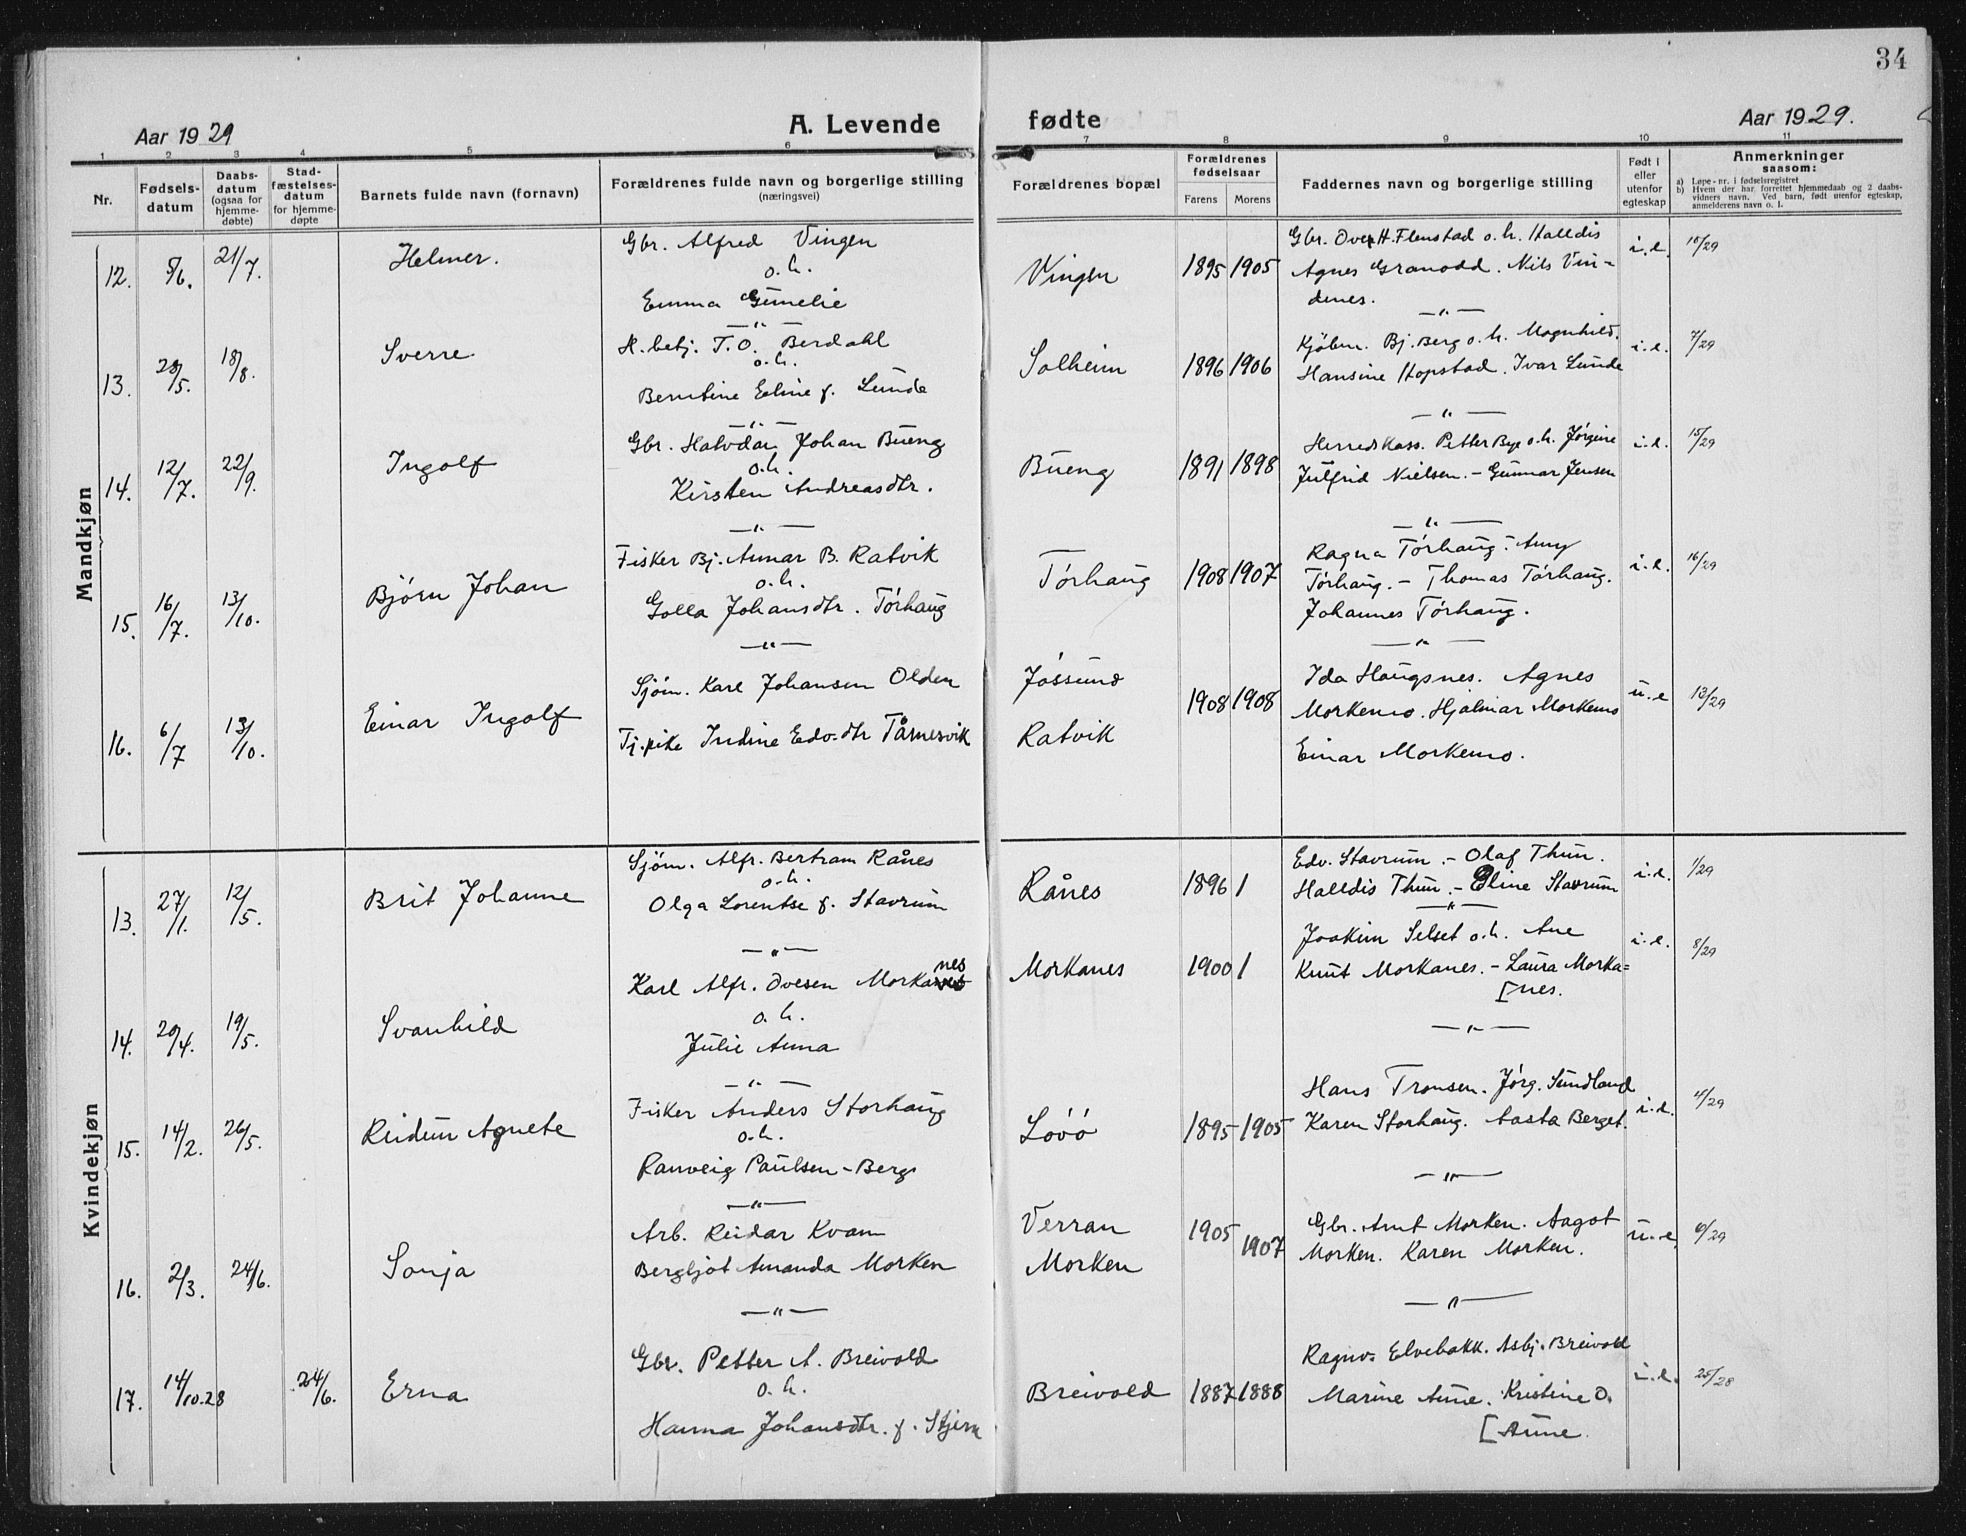 34
Aar 1929
A. Levende fødte
Aar 1929.
1 2 3 4 5 6 7 8 9 10 11
Nr.
Fødsels-
datum
Daabs-
datum
(ogsaa for
hjemme-
døbte)
Stad-
fæstelses-
datum
for hjemme-
døpte
Barnets fulde navn (fornavn)
Forældrenes fulde navn og borgerlige stilling
(næringsvei)
Forældrenes bopæl
Forældrenes
fødselsaar
Farens Morens
Faddernes navn og borgerlige stilling
Født i
eller
utenfor
egteskap
Anmerkninger
saasom:
a) Løpe-nr. i fødselsregistret
b) Hvem der har forrettet hjemmedaab og 2 daabs-
vidners navn. Ved barn, født utenfor egteskap,
anmelderens navn o. l.
Mandkjøn
12. 5/6. 21/7. Helmer.
Gbr. Alfred Vingen
o.h.
Emma Gunelie
Vingen 1895 1905
Gbr. Ove H. Flenstad o.h. Halldis
Agnes Granodd. Nils Vin=
denes.
i.e. 10/29
—"—
13. 28/5. 18/8. Sverre
H.betj. T.O. Berdahl
o.h.
Berntine Eline f. Lunde
Solheim 1896 1906
Kjøbm. Bj. Berg o.h. Magnhild.
Hansine Hopstad. Ivar Lunde
i.e. 7/29
—"—
14. 12/7. 22/9. Ingolf
Gbr. Halvdan Johan Bueng
o.h.
Kirsten Andreasdtr.
Bueng 1891 1898
Herredskass. Petter Bye o.h. Jørgine
Julfrid Nielsen. – Gunnar Jensen
i.e. 15/29
—"—
15. 16/7. 13/10. Bjørn Johan
Fisker Bj. Annar B. Ratvik
o.h.
Golla Johansdtr. Tørhaug
Tørhaug 1908 1907
Ragna Tørhaug. – Amy
Tørhaug. – Thomas Tørhaug.
Johannes Tørhaug.
i.e. 16/29
—"—
16. 6/7 13/10. Einar Ingolf
Sjøm. Karl Johansen Olden
Tj.pike Indine Edv.dtr Tårnesvik
Jøssund
Ratvik
1908 1908
Ida Haugsnes. Agnes
Morkemo. Hjalmar Morkemo
Einar Morkemo.
u.e 13/29
Kvindekjøn
13. 27/1. 12/5. Brit Johanne
Sjøm. Alfr. Bertram Rånes
o.h.
Olga Lorentse f. Stavrum
Rånes 1896 1
Edv. Stavrum. – Olaf Thun.
Halldis Thun. – Eline Stavrum
i.e. 1/29
—"—
14. 20/4. 19/5. Svanhild
Karl Alfr. Ovesen Morkanes
o.h.
Julie Anna
Morkanes 1900 1
Joakim Selset o.h. Ane
Knut Morkanes. – Laura Morka=
[nes.
i.e. 8/29
—"—
15. 14/2. 26/5. Reidun Agnete
Fisker Anders Storhaug
o.h.
Ranveig Paulsen – Berg
Løvø 1895 1905
Hans Tronsen. Jørg. Sundland
Karen Storhaug. Aasta Berget.
i.e. 4/29
—"—
16. 2/3. 24/6. Sonja
Arb. Reidar Kvam
Bergljot Amanda Morken
Verran
Morken
1905
1907
Gbr. Arnt Morken. Aagot
Morken. Karen Morken.
u.e. 6/29
—"—
17. 14/10.28 24/6. Erna
Gbr. Petter A. Breivold
o.h.
Hanna Johansdtr. f. Stjern
Breivold 1887 1888
Ragnv. Elvebakk. Asbj. Breivold
Marine Aune. Kristine O.
[Aune.
i.e. 25/28